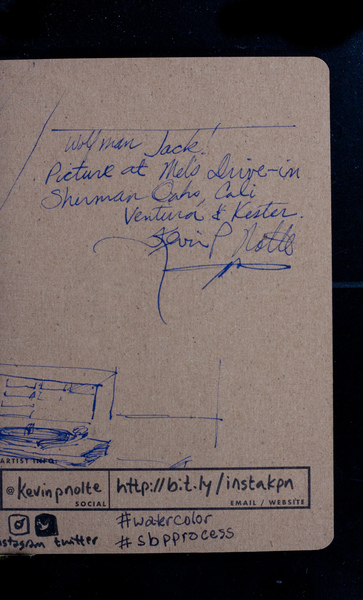 Wolfman Jack!
Picture at Mel's Drive-in
Sherman Oaks, Cali
Ventura & Kester.
Kevin P Nolte
ARTIST INFO
@kevinpnolte
SOCIAL
http://bit.ly/instakpn
EMAIL / WEBSITE
instagram twitter
#watercolor
#sbpprocess